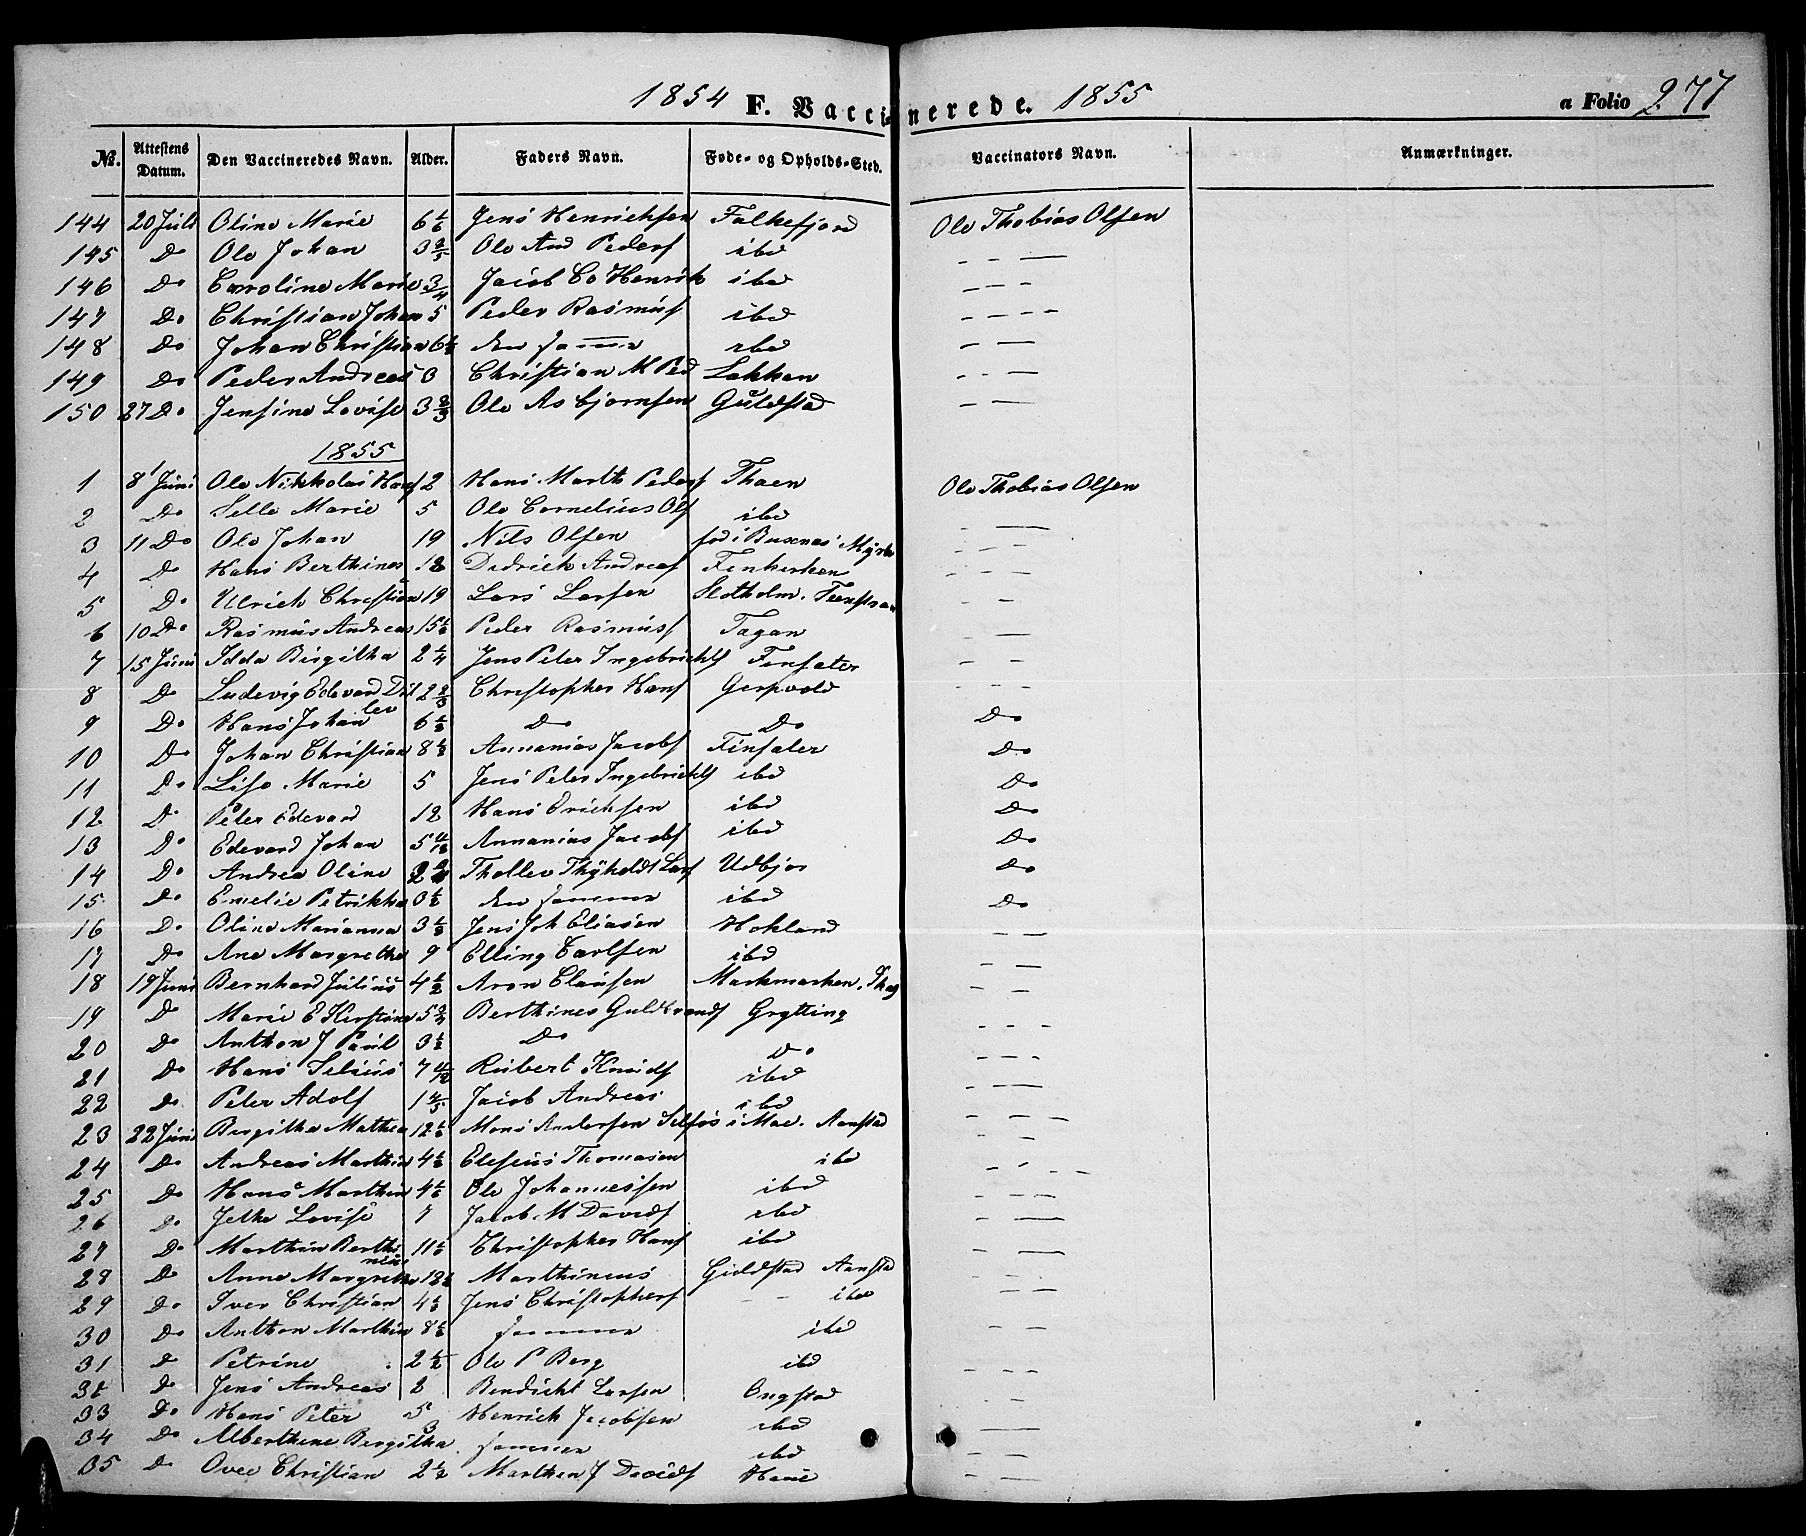 1854 F. Vaccinerede. 1855 a Folio 277
No. Attestens Datum. Den Vaccineredes Navn. Alder. Faders Navn. Føde- og Opholds-Sted. Vaccinators Navn. Anmærkninger.
144 20 Juli Oline Marie 6 1/6 Jens Henrichsen Falkefjord Ole Thobias Olsen
145 Do Ole Johan 3 Ole And Peders ibd — — —
146 Do Caroline Marie 3/4 Jacob Co Henrik ibd — — —
147 Do Christian Johan 5 Peder Rasmus ibd — — — —
148 Do Johan Christian 6 den samme ibd — —
149 Do Peder Andreas 3 Christian M Ped Løkken — — —
150 27 Do Jensine Lovise 3 2/3 Ole Asbjørnsen Guldstad — —
1855
1 8 Juni Ole Nikkolai Hans 12 Hans Marth Peders Thoen Ole Thobias Olsen
2 Do Selle Marie 5 Ole Cornelius Ols ibd — — —
3 11 Do Ole Johan 19 Nils Olsen fød i Buxnæs — — —
4 Do Hans Berthines 18 Didrich Andreas — — —
5 Do Ulrich Christian 19 Lars Larsen Slotholm.
6 10 Do Rasmus Andreas 15 Peder Rasmus Tagan — —
7 15 Juni Idda Birgitha 2 1/4 Jens Peter Ingebrichts Finsæter — —
8 Do Ludevig Edevard Dit 2 2/3 Christopher Hans — — —
lev
9 Do Hans Johan 6 Do Do Do
10 Do Johan Christian 8 Annanias Jacobs Finsæter Do
11 Do Lise Marie 5 Jens Peter Ingebrichts ibd Do
12 Do Peter Edevard 12 Hans Erichsen ibd Do
13 Do Edevard Johan 5 Annanias Jacobs ibd Do
14 Do Andrea Oline 2 Thollev Thyholdt Lars Udbjor Do
15 Do Emelie Petrikka 0 1/2 den samme ibd Do
16 Do Oline Marianna 3 Jens Joh Eliasen Hokland — —
17 Do Ane Margrethe 9 Elling Carlsen ibd — — —
18 19 Juni Bernhard Julius 4 1/2 Aron Clausen Markmarken. — —
19 Do Marie E Kirstine 5 Berthines Guldbrands Grytting — — —
20 Do Anthon J Paul 3 1/2 Do Do — — —
21 Do Hans Selius 7 Rubert Knuds ibd — — —
22 Do Peter Adolf 1 4/5 Jacob Andreas ibd — — —
23 22 Juni Birgitha Mathea 12 Mons Andersen Selfos i Mae. Aanstad — — —
24 Do Andreas Marthin 4 Elesius Thomasen ibd — — — —
25 Do Hans Marthin 4 1/6 Ole Johannessen ibd — — —
26 Do Jetha Lovise 7 Jacob M Davids ibd — — —
27 Do Marthin Berthi 11 Christopher Hans ibd — — —
neus
28 Do Anne Margrethe 12 Marthineus Guldstad Aanstad — — —
29 Do Iver Christian 4 Jens Christophers — — ibd — — —
30 Do Anthon Marthin 8 samme ibd
31 Do Petrine 2 1/2 Ole P Berg ibd — — —
32 Do Jens Andreas 2 Bendicht Larsen Ongstad — —
33 Do Hans Peter 5 Henrich Jacobsen ibd — — —
34 Do Alberthine Birgitha 3 samme ibd — — —
35 Do Ovee Christian 2 1/2 Marthen J Davids — — —